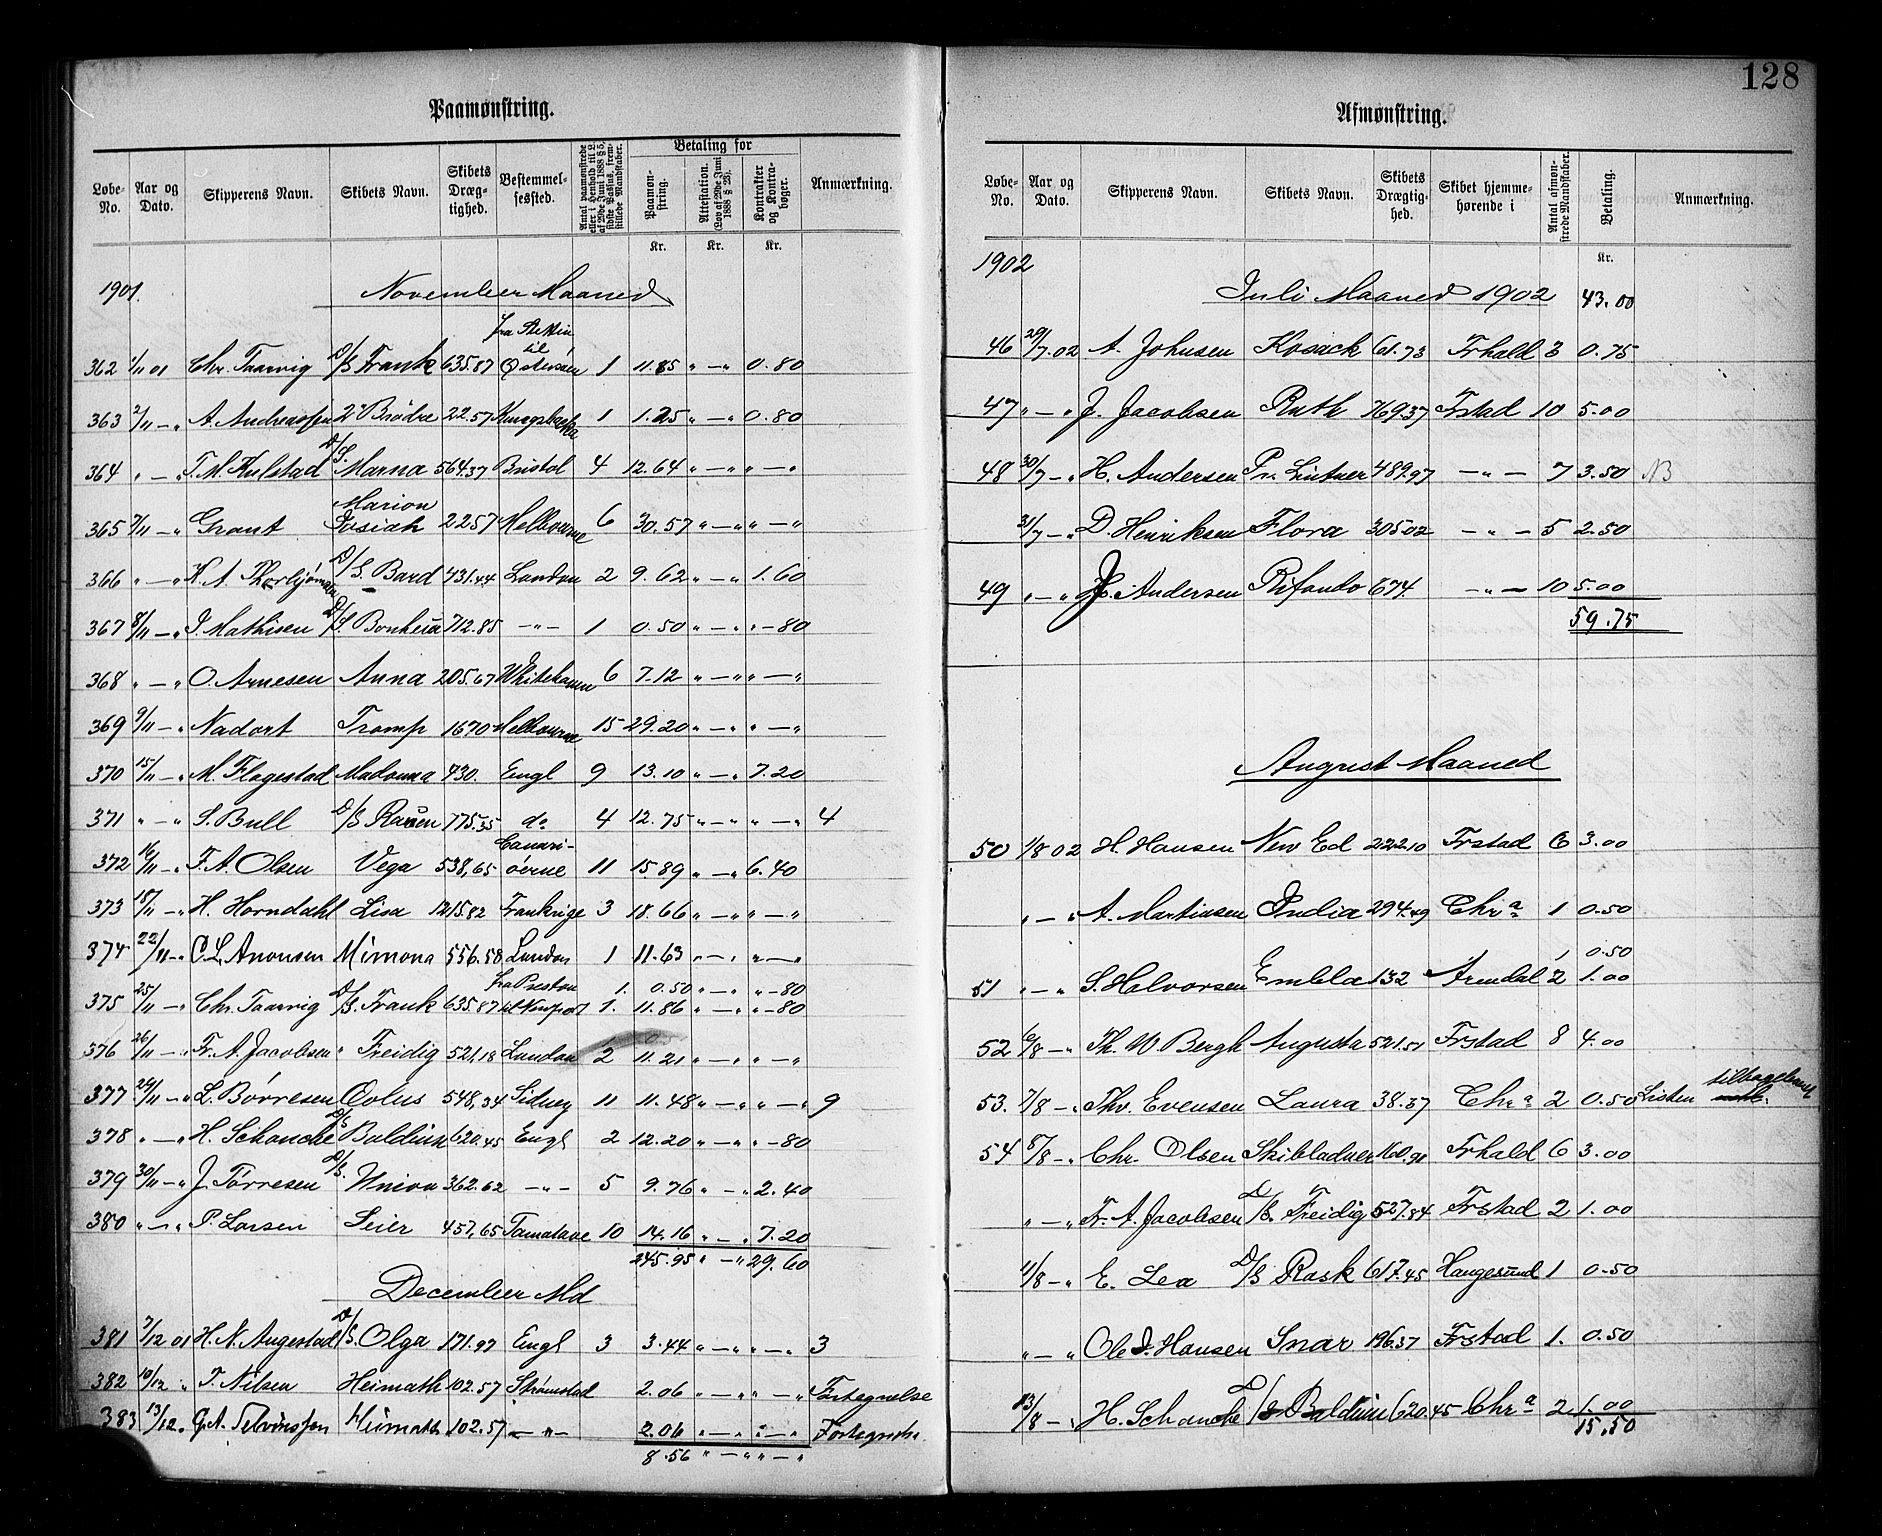 128
Paamønstring.
Løbe-No. Aar og Dato. Skipperens Navn. Skibets Navn. Skibets Dræg-tighed. Bestemmel-sessted. Antal paamønstrede eller i Henhold til L. af 29de Juni 1888 § 5, sidste Passus, frem-stillede Mandskaber. Betaling for Paamøn-string. Attestation. (Lov af 29de Juni 1888 § 25). Kontrakter og Kontra-bøger. Anmærkning.
Kr. Kr. Kr.
1901. November Maaned
362 1/11 01 Chr. Taarvig D/S Frank 635.87 fra Stettin til 1 11.85 " — " 0.80
363 2/11 — " A. Andreassen 2 Brødre 22.57 Kungsbacka 1 1.25 " — " 0.80
364 " — " T. M. Kulstad D/S. Marna 564.37 Bristol 4 12.64 " — " " — "
365 7/11 — " Grant Marion Josiah 2257 Melbourne 6 30.57 " — " " — "
366 " — " K. A. D/S. Bard 431.44 London 2 9.62 " — " 1.60
367 8/11 — " J. Mathisen D/S. Bonheur 712.85 — " — 1 0.50 " — " " — 80
368 " — " O. Arnesen Anna 205.67 Whitehaven 6 7.12 " — " " — "
369 9/11 — " Nadort Tromp 1670 Melbourne 15 29.20 " — " " — "
370 15/11 — " M. Flagestad Madonna 430. Engl 9 13.10 " — " 7.20
371 " — " S. Bull D/S 775.35 do 4 12.75 " — " " — " 4
372 16/11 — " F. A. Olsen Vega 538,65 Canari-øerne 11 15.89 " — " 6.40
373 18/11 — " H. Horndahl Lisa 1215.82 Frankrige 3 18.66 " — " " — "
374 22/11 — " C. L. Anonsen Mimona 556.58 London 1 11.63 " — " " — "
375 25/11 — " Chr. Taarvig D/S. Frank 635.87 fra Preston til Newport 1. 0.50 " — " " — 80
1. 11.86 " — " " — 80
376 26/11 — " Fr. A. Jacobsen " Freidig 521,18 London 2 11.21 " — " " — "
377 29/11 — " L. Børresen Æolus 548,34 Sidney 11 11.48 " — " " — " 9
378 " — " H. Schanche D/S Baldwin 620.45 Engl 2 12.20 " — " " — 80
379 30/11 — " J. Tørresen D/S. Union 362.62 — " — 5 9.76 " — " 2.40
380 " — " P. Larsen Seier 457,65 Tamatave 10 14.16 " — " 7.20
245.95 " — " 29.60
December Md
381 7/12 01 H. N. Augestad D/S. Olga 171.97 Engl 3 3.44 " — " " — " 3
382 10/12 " T. Nilsen Heimath 102.57 Strømstad 2.06 " — " " — " Fortegnelse
383 13/12 " Heimath 102.57 — " — 2.06 " — " " — " Fortegnelse
8.56 " — " " — "
Afmønstring.
Løbe-No. Aar og Dato. Skipperens Navn. Skibets Navn. Skibets Drægtig-hed. Skibet hjemme-hørende i Antal afmøn-strede Mandskaber. Betaling. Anmærkning.
Kr.
1902
Juli Maaned 1902 43.00
46 29/7.02 A. Johnsen Kosack 61.73 Frhald 3 0.75
47 " — " J. Jacobsen Ruth 769.37 Frstad 10 5.00
48 30/7 — " H. Andersen Pr. Lintner 489.97 — " — 7 3.50 NB
31/7 — " D. Henriksen Flora 305.02 — " — 5 2.50
49 " — " H. Andersen Rifondo 674. — " — 10 5.00
59.75
August Maaned
50 1/8 02 H. Hansen New Ed 222.10 Frstad 6 3.00
" — " A. Martinsen India 294.49 Chra 1 0.50
1 0.50
51 " — " S. Halvorsen Embla 132 Arendal 2 1.00
52 6/8 — " Th. W. Bergh Augusta 521.51 Frstad 8 4.00
53. 7/8 — " Thv. Evensen Laura 38.37 Chra 2 0.50 Listen
54 8/8 — " Chr. Olsen Skibladner 160.91 Frhald 6 3.00
" — " Fr. A. Jacobsen D/S. Freidig 527.84 Frstad 2 1.00
11/8 — " E. Lea D/S Rask 617.45 Haugesund 1 0.50
" — " Ole J. Hansen Snar 196.37 Frstad 1. 0.50
13/8 — " H. Schanche D/S Baldwin 620.45 Chra 2 1.00
15.50